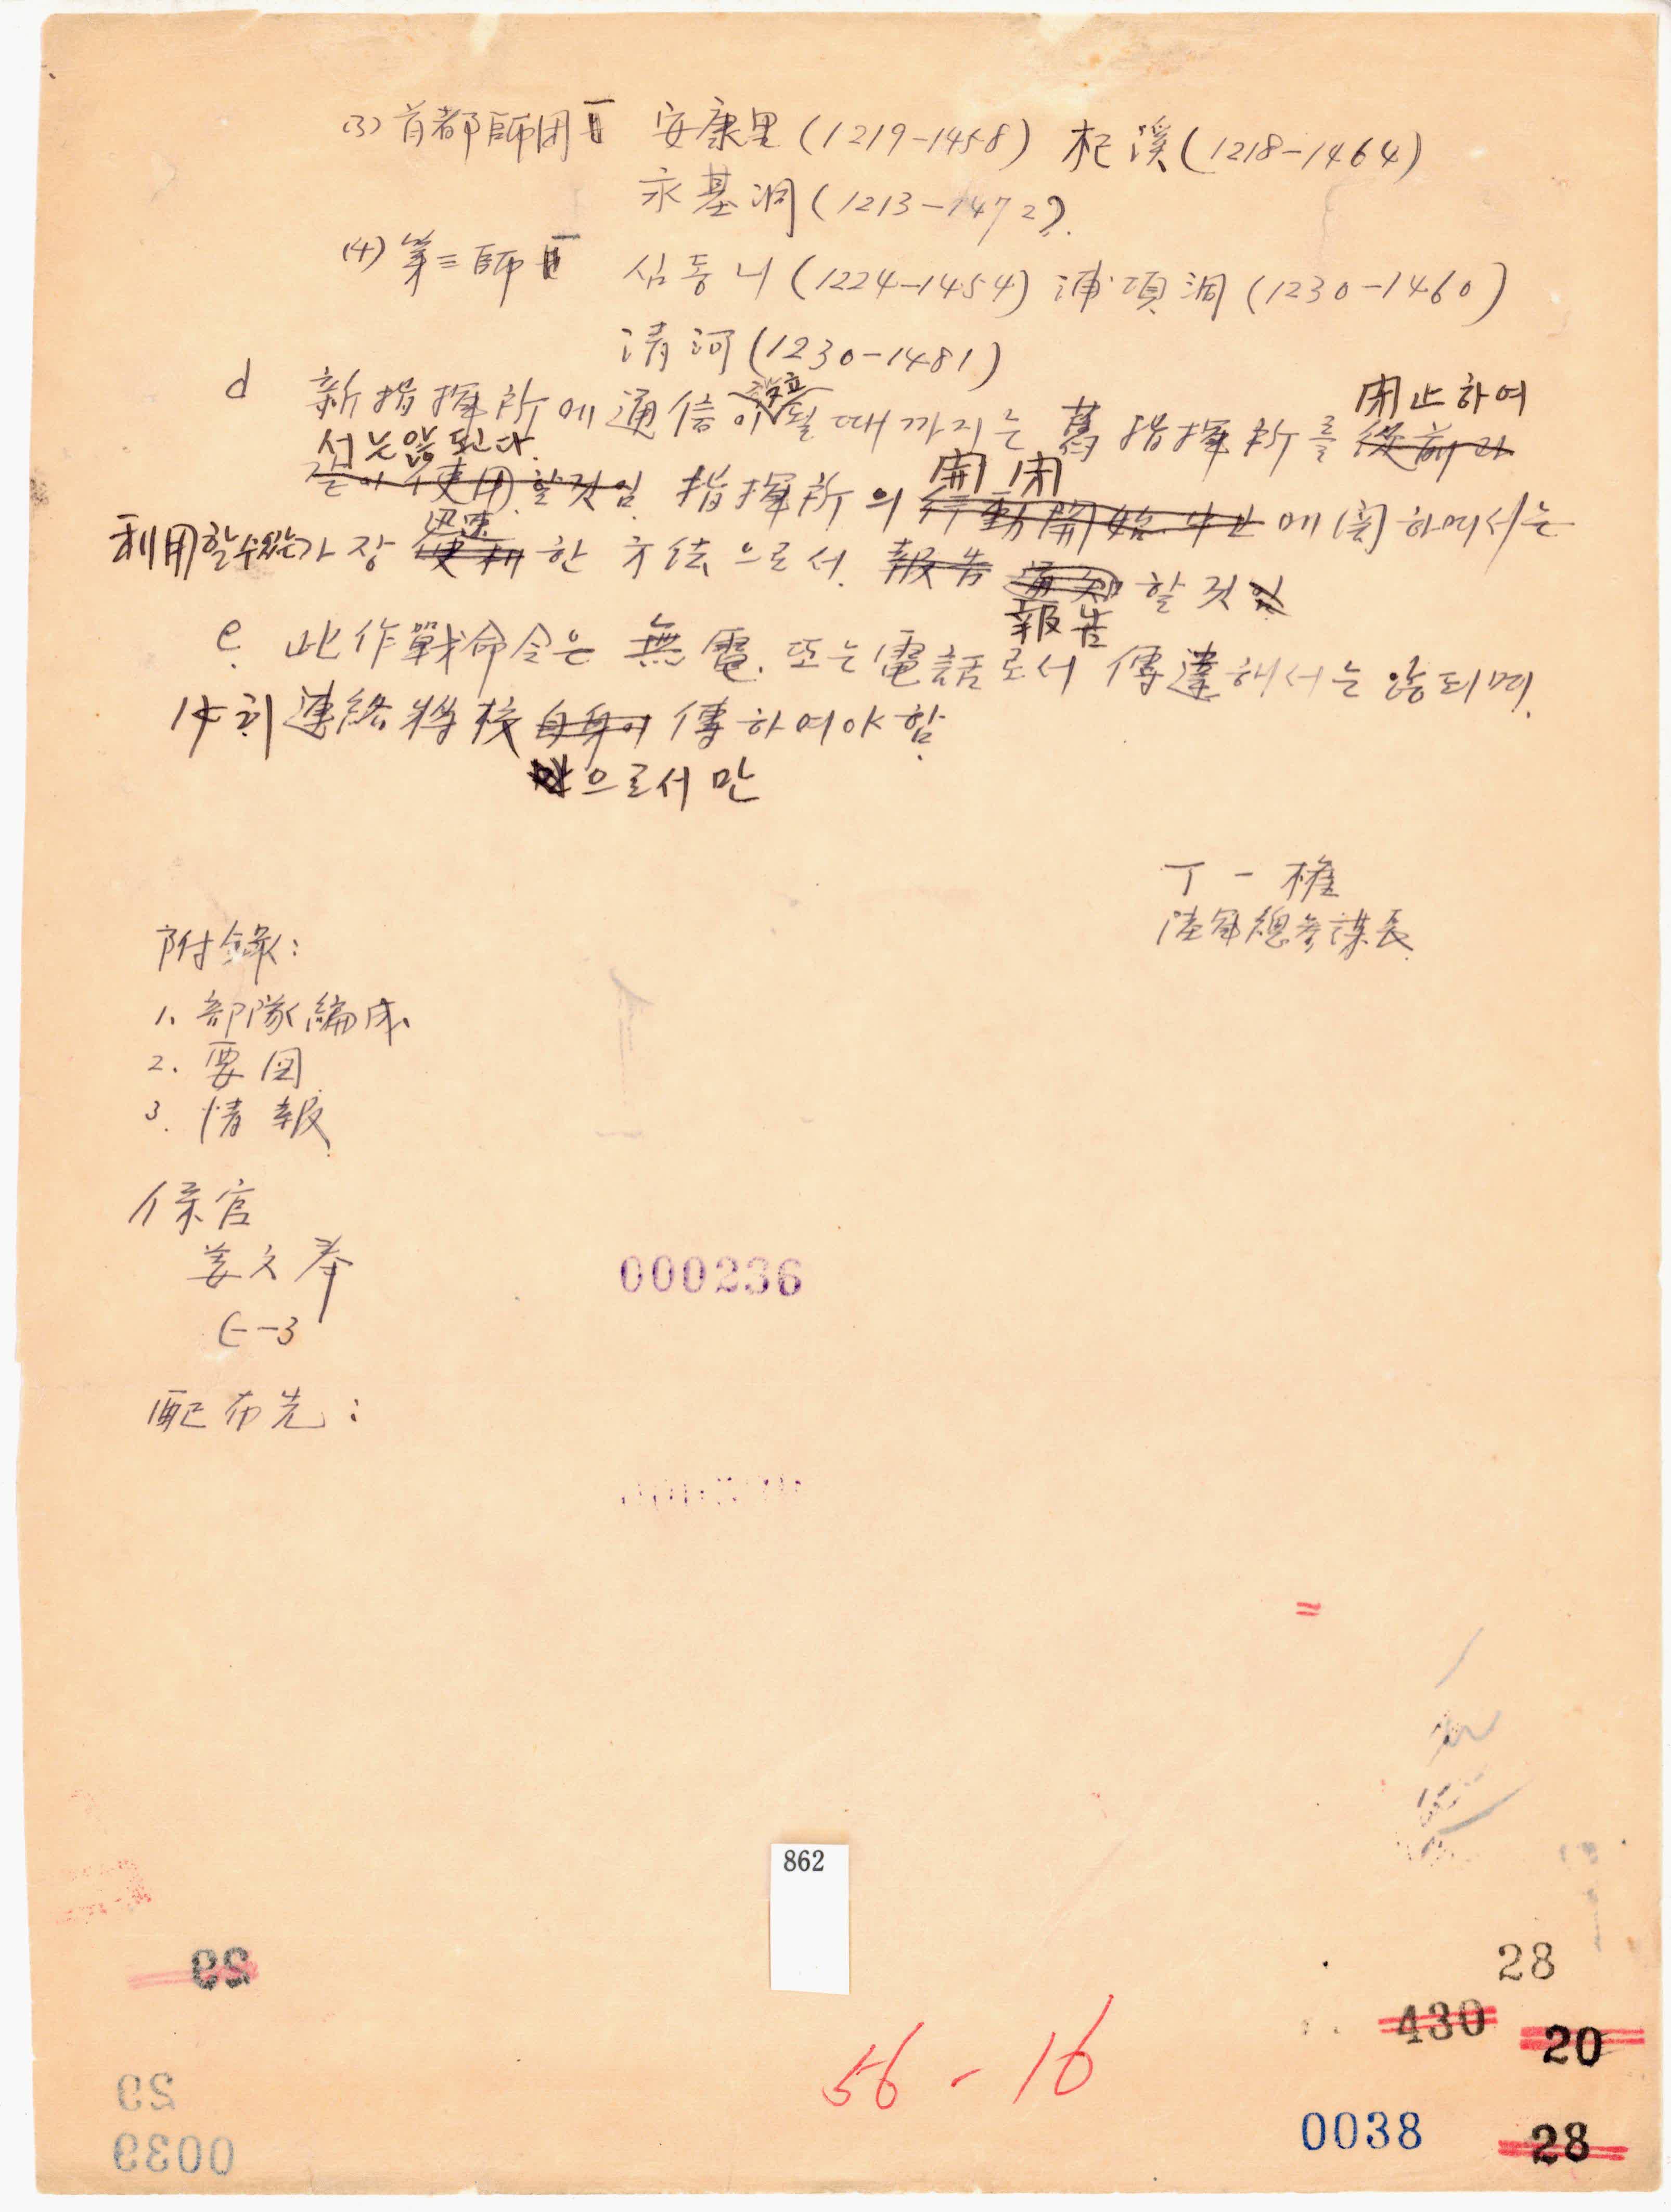 (3) 首都師団 安康里 (1219-1458) 杞溪 (1218-1464)
永基洞 (1213-1472).
(4) 第三師 심동니 (1224-1454) 浦項洞 (1230-1460)
淸河 (1230-1481)
d 新指揮所에 通信이 될때까지는 舊指揮所를 從前과
閉止하여
서는 않된다.
같이 使用 할것임. 指揮所의 行動開始 中止에 關하여서는
開閉
利用할수있는 가장 便利한 方法으로서 報告 通知 할것임
迅速
報告
e. 此作戰命令은 無電, 또는 電話로서 傳達해서는 않되며
特히 連絡將校 自身이 傳하여야 함.
으로서만
丁一權
陸軍總參謀長
附錄:
1. 部隊編成
2. 要図
3. 情報
係官
姜文奉
G-3
配布先:
000236
862
29
29
0039
56-16
28
430
20
0038
28